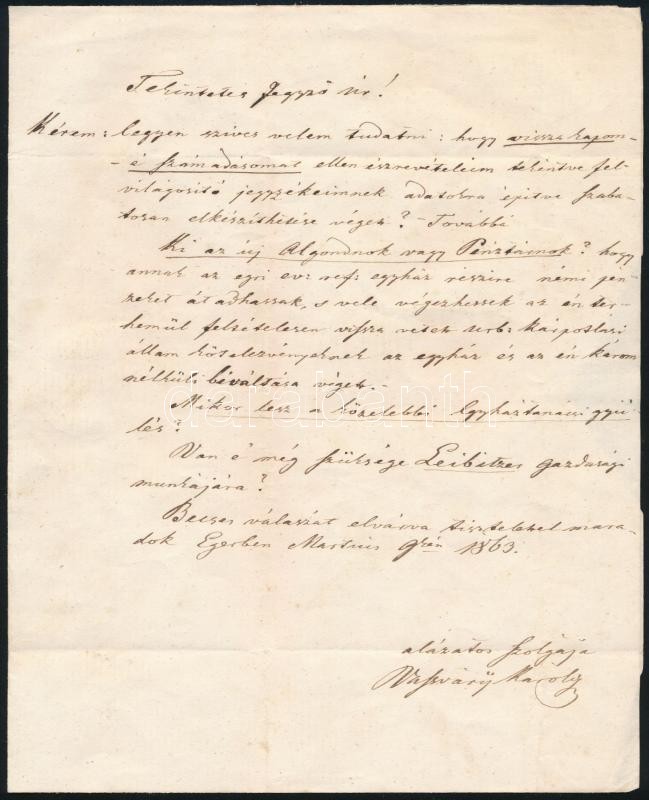 Tekintetes Jegyző Úr!
Kérem: legyen szives velem tudatni: hogy vissza kapom-
-é számadásomat ellen észrevételeim tekintve fel-
világositó jegyzékeimnek adatokra épitve szaba-
tosan elkészithetése végett? - Továbbá
Ki az új Algondnok vagy Pénztárnok? hogy
annak az egri ev: ref: egyház részire némi pén-
zeket át adhassak, s vele végezhessek az én ter-
hemül felsételesen vissza vetett urb: kárpótlási
állam kötelezvényeknek az egyház és az én károm
nélküli beváltása végett.-
Mikor lesz a közelebbi Egyháztanácsi gyü-
lés?
Van é még szüksége Leibitzer gazdasági
munkájára?
Becses válaszát elvárva tisztelettel mara-
dok Egerben Martius 9kén 1863.
alázatos szolgája
Vasváry Karoly
darabanth